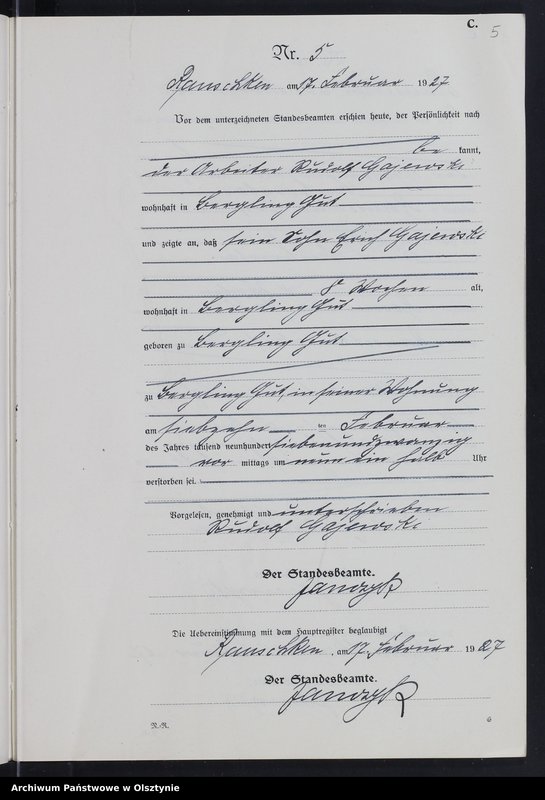 C.
5
Nr. 5
Rauschken am 17. Februar 1927
Vor dem unterzeichneten Standesbeamten erschien heute, der Persönlichkeit nach
be kannt,
der Arbeiter Rudolf Gajewski
wohnhaft in Bergling Gut
und zeigte an, daß sein Sohn Erich Gajewski
8 Wochen alt,
wohnhaft in Bergling Gut
geboren zu Bergling Gut
zu Bergling Gut, in seiner Wohnung
am siebzehn ten Februar
des Jahres tausend neunhundert siebenundzwanzig
vor mittags um neun ein halb Uhr
verstorben sei.
Vorgelesen, genehmigt und unterschrieben
Rudolf Gajewski
Der Standesbeamte.
Die Uebereinstimmung mit dem Hauptregister beglaubigt
Rauschken, am 17. Februar 1927
Der Standesbeamte.
6
Archiwum Państwowe w Olsztynie